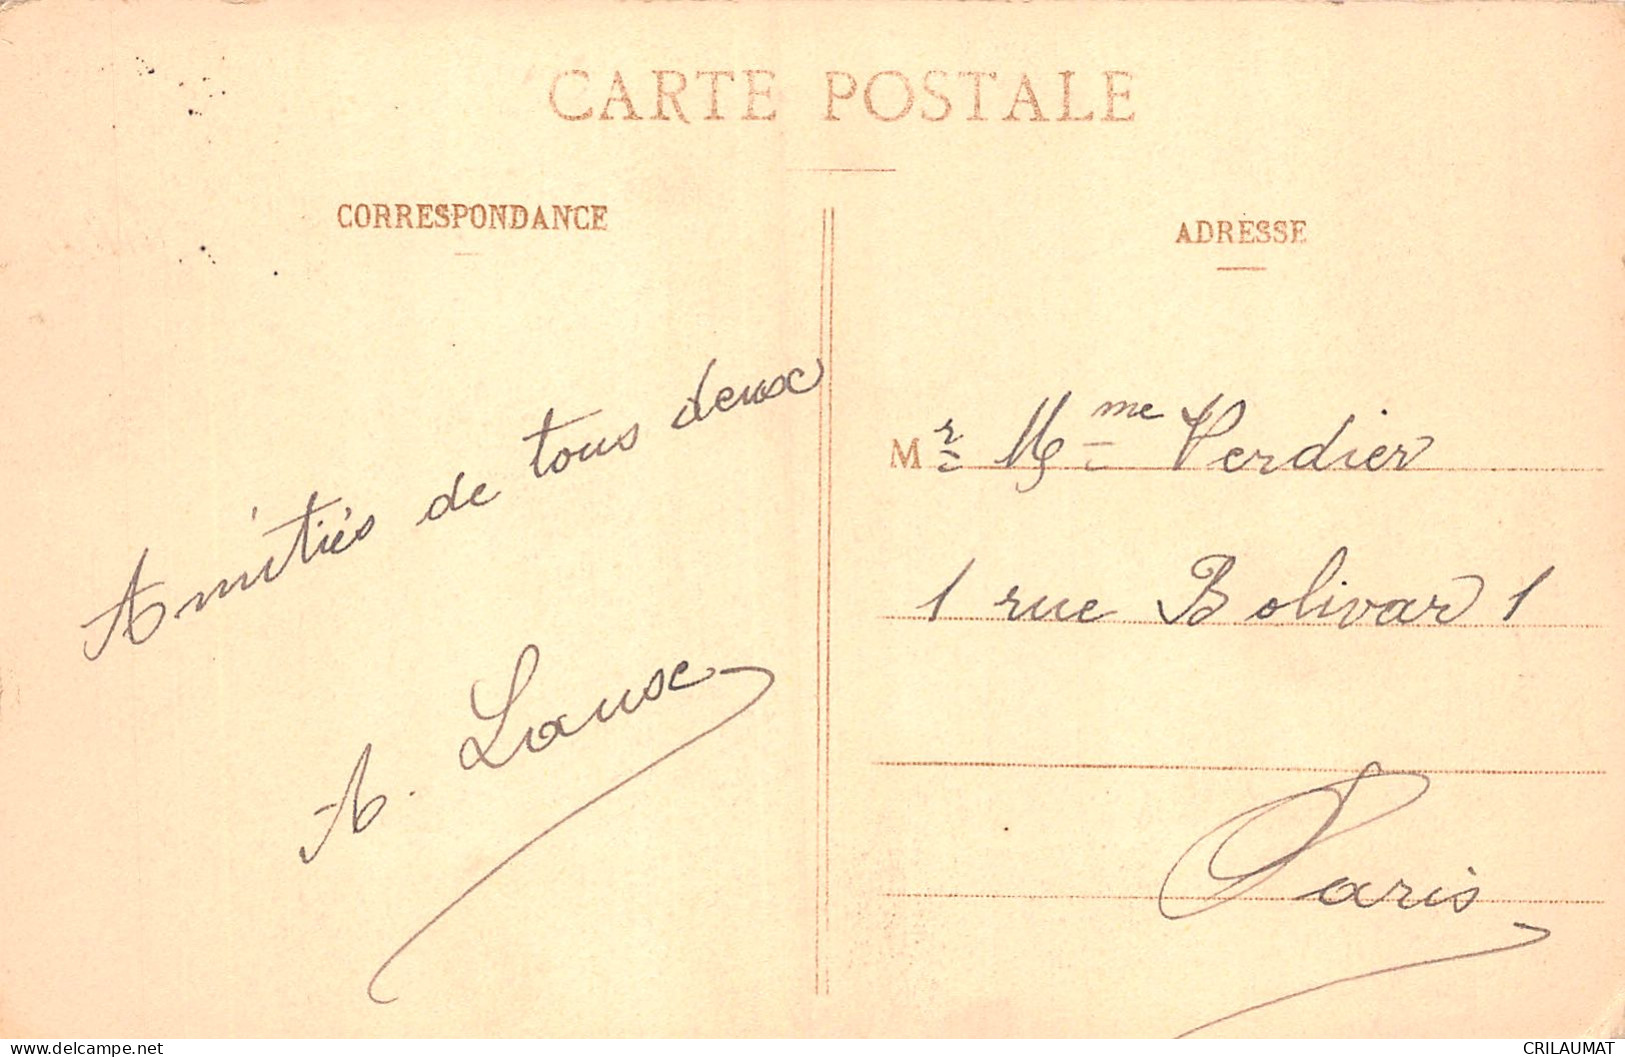 CARTE POSTALE
CORRESPONDANCE
ADRESSE
Amitiés de tous deux
A.
Mr Mme Verdier
1 rue Bolivar 1
Paris
www.delcampe.net
CRILAUMAT